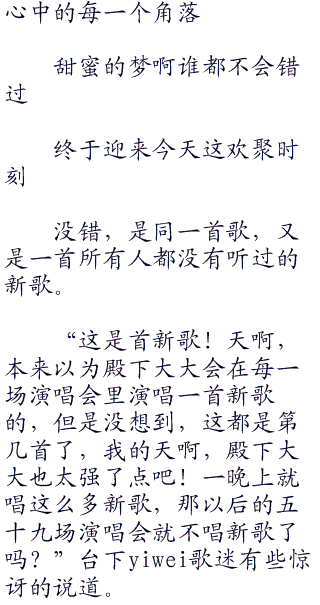 心中的每一个角落
甜蜜的梦啊谁都不会错
过
终于迎来今天这欢聚时
刻
没错，是同一首歌，又
是一首所有人都没有听过的
新歌。
“这是首新歌！天啊，
本来以为殿下大大会在每一
场演唱会里演唱一首新歌
的，但是没想到，这都是第
几首了，我的天啊，殿下大
大也太强了点吧！一晚上就
唱这么多新歌，那以后的五
十九场演唱会就不唱新歌了
吗？”台下yiwei歌迷有些惊
讶的说道。